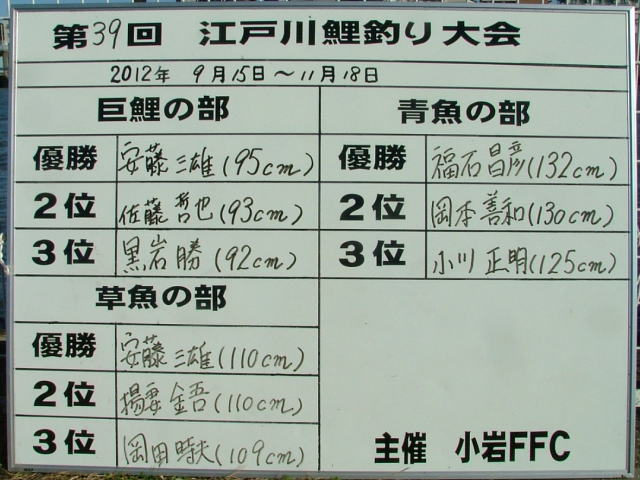 第39回 江戸川鯉釣り大会
2012年 9月15日～11月18日
巨鯉の部
優勝 安藤三雄(95cm)
2位 佐藤哲也(93cm)
3位 黒岩勝(92cm)
青魚の部
優勝 福石昌彦(132cm)
2位 岡本善和(130cm)
3位 小川正明(125cm)
草魚の部
優勝 安藤三雄(110cm)
2位 揚妻金吾(110cm)
3位 岡田時夫(109cm)
主催 小岩FFC